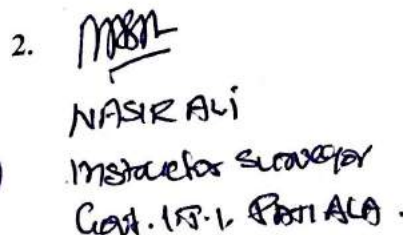 2.
NASIR ALI
Instructor Surveyor
Govt. I.T.I. PATIALA.